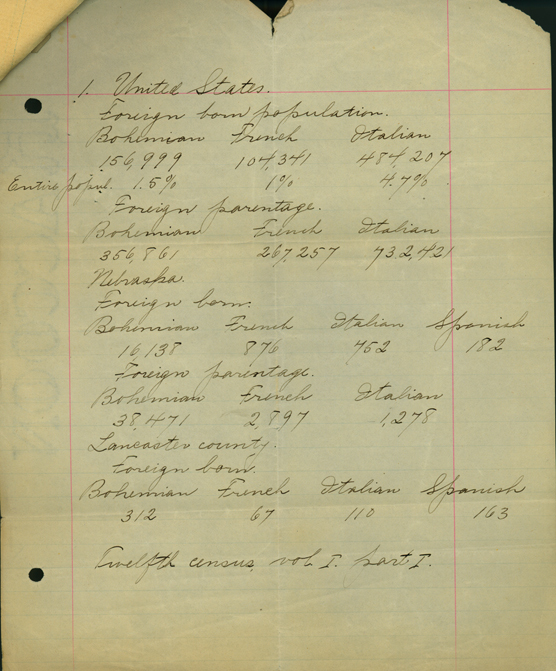 1. United States.
Foreign born population.
Bohemian French Italian
156,999 104,341 484,207
Entire popul. 1.5% 1% 4.7%
Foreign parentage.
Bohemian French Italian
356,861 267,257 732,421
Nebraska.
Foreign born.
Bohemian French Italian Spanish
16,138 876 752 182
Foreign parentage.
Bohemian French Italian
38,471 2,897 1,278
Lancaster county.
Foreign born.
Bohemian French Italian Spanish
312 67 110 163
Twelfth census, vol I. part I.